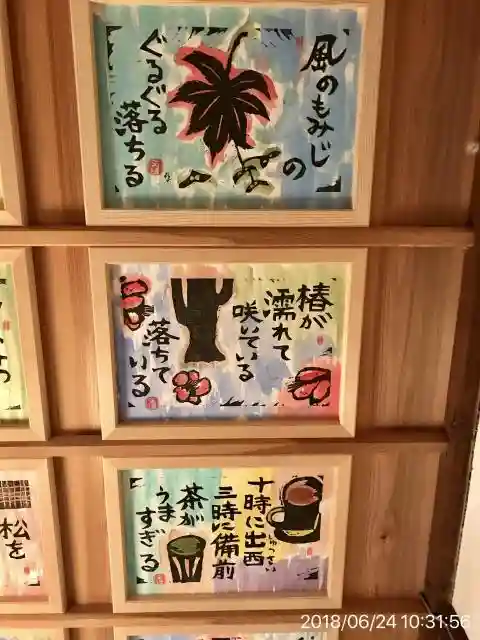 風のもみじ
の
ぐるぐる
落ちる
椿が
濡れて
咲いている
落ちて
いる
十時に出西
しゅっさい
三時に備前
茶が
うま
すぎる
松を
2018/06/24 10:31:56